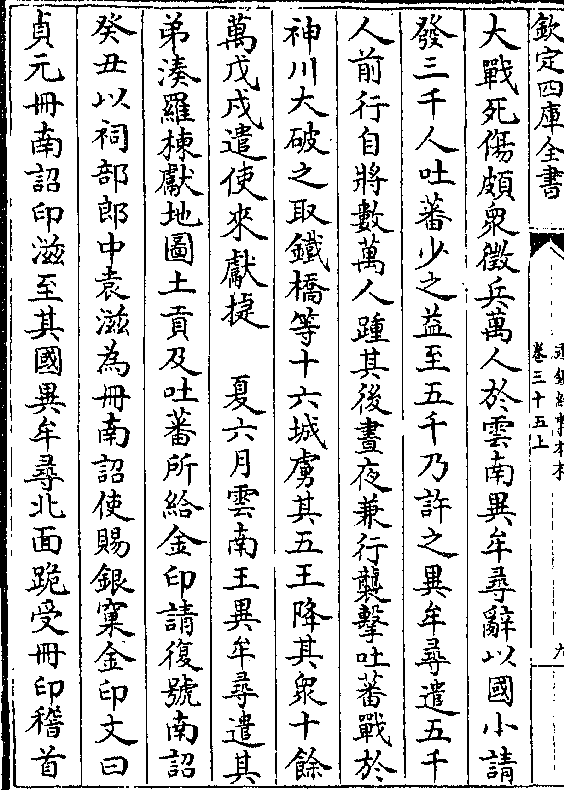 欽定四庫全書
卷三十五上
九
大戰死傷頗衆徵兵萬人於雲南異牟尋辭以國小請
發三千人吐蕃少之益至五千乃許之異牟尋遣五千
人前行自將數萬人踵其後晝夜兼行襲擊吐蕃戰於
神川大破之取鐵橋等十六城虜其五王降其衆十餘
萬戊戌遣使來獻捷　夏六月雲南王異牟尋遣其
弟湊羅棟獻地圖土貢及吐蕃所給金印請復號南詔
癸丑以祠部郎中袁滋為冊南詔使賜銀窠金印文曰
貞元冊南詔印滋至其國異牟尋北面跪受冊印稽首